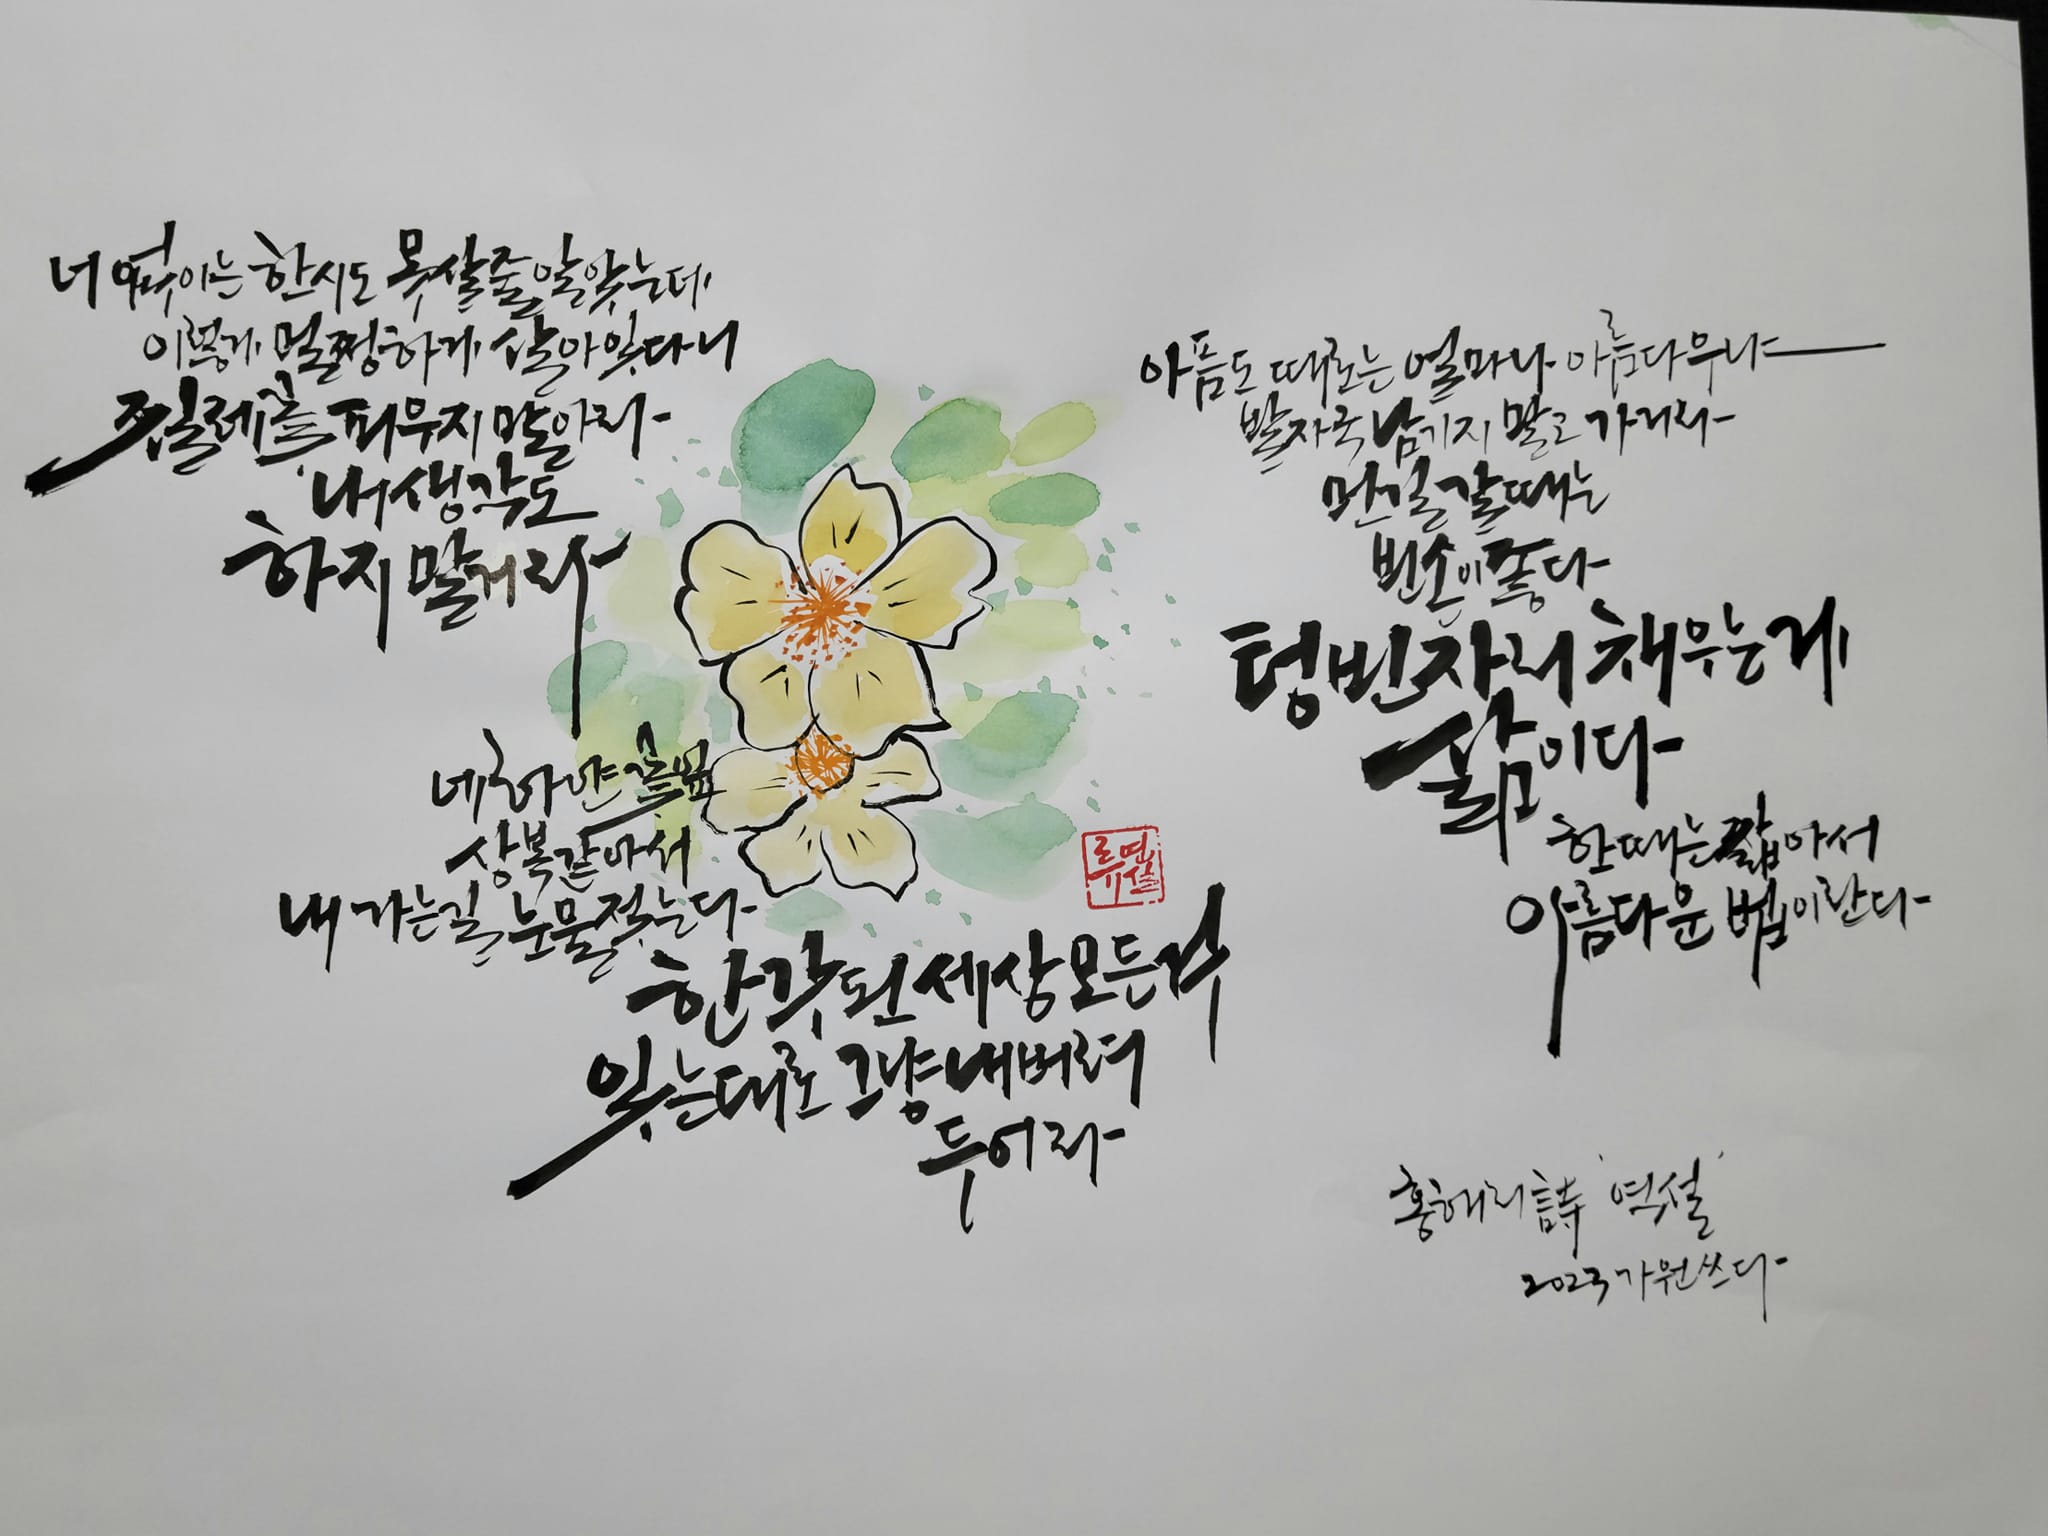 너 없이는 한시도 못 살 줄 알았는데
이렇게 멀쩡하게 살아있다니
찔레꽃 피우지 말아라
내 생각도
하지 말거라
네 하얀 꽃
상복 같아서
내 가는 길 눈물 적는다
한갓된 세상 모든 것
있는대로 그냥 내버려
두어라
아픔도 때로는 얼마나 아름다우냐
발자국 남기지 말고 가거라
먼 길 갈 때는
빈손이 좋다
텅 빈 자리 채우는 게
삶이다
한때는 짧아서
아름다운 법이란다
홍해리 詩 '역설'
2023 가원 쓰다